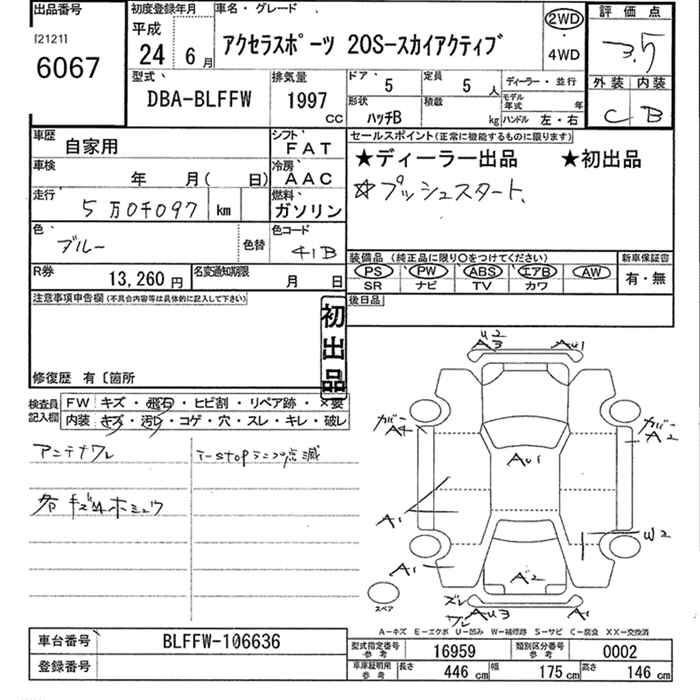 出品番号
I21211
6067
初度登録年月
平成
24 6月
車名・グレード
アクセラスポーツ 20S-スカイアクティブ
2WD
・
4WD
評価点
3.5
外装 内装
C B
型式
DBA-BLFFW
排気量
1997
CC
ドア 5
定員 5人
形状 ハッチB
積載 kg
ディーラー・並行
モデル年式 年
ハンドル 左・右
車歴 自家用
シフト FAT
車検 年 月( 日)
冷房 AAC
走行 5万0千097 km
燃料 ガソリン
色 ブルー 色替
色コード 41B
R券 13,260円
名変通知期限 月 日
セールスポイント(正常に機能するものに限ります)
★ディーラー出品 ★初出品
☆プッシュスタート、
装備品(純正品に限り○をつけてください)
PS PW ABS エアB AW
SR ナビ TV カワ
新車保証書
有・無
後日品
注意事項申告欄(不具合内容等は具体的に記入して下さい)
初出品
修復歴 有〔箇所
検査員記入欄
FW キズ・飛石・ヒビ割・リペア跡・×要
内装 キズ・汚レ・コゲ・穴・スレ・キレ・破レ
アンテナワレ
i-stopランプ点滅
各キズ凹ホシュウ
U2
A3
AU1
カバー
A4
カバー
A2
AU1
A1
W2
A1
A2
ズレ
ワレ
AU3
A1
スペア
A-キズ E-エクボ U-凹み W-補修跡 S-サビ C-腐食 XX-交換済
車台番号 BLFFW-106636
登録番号
型式指定番号参考 16959
類別区分番号参考 0002
車庫証明用参考
長さ 446cm
幅 175cm
高さ 146cm